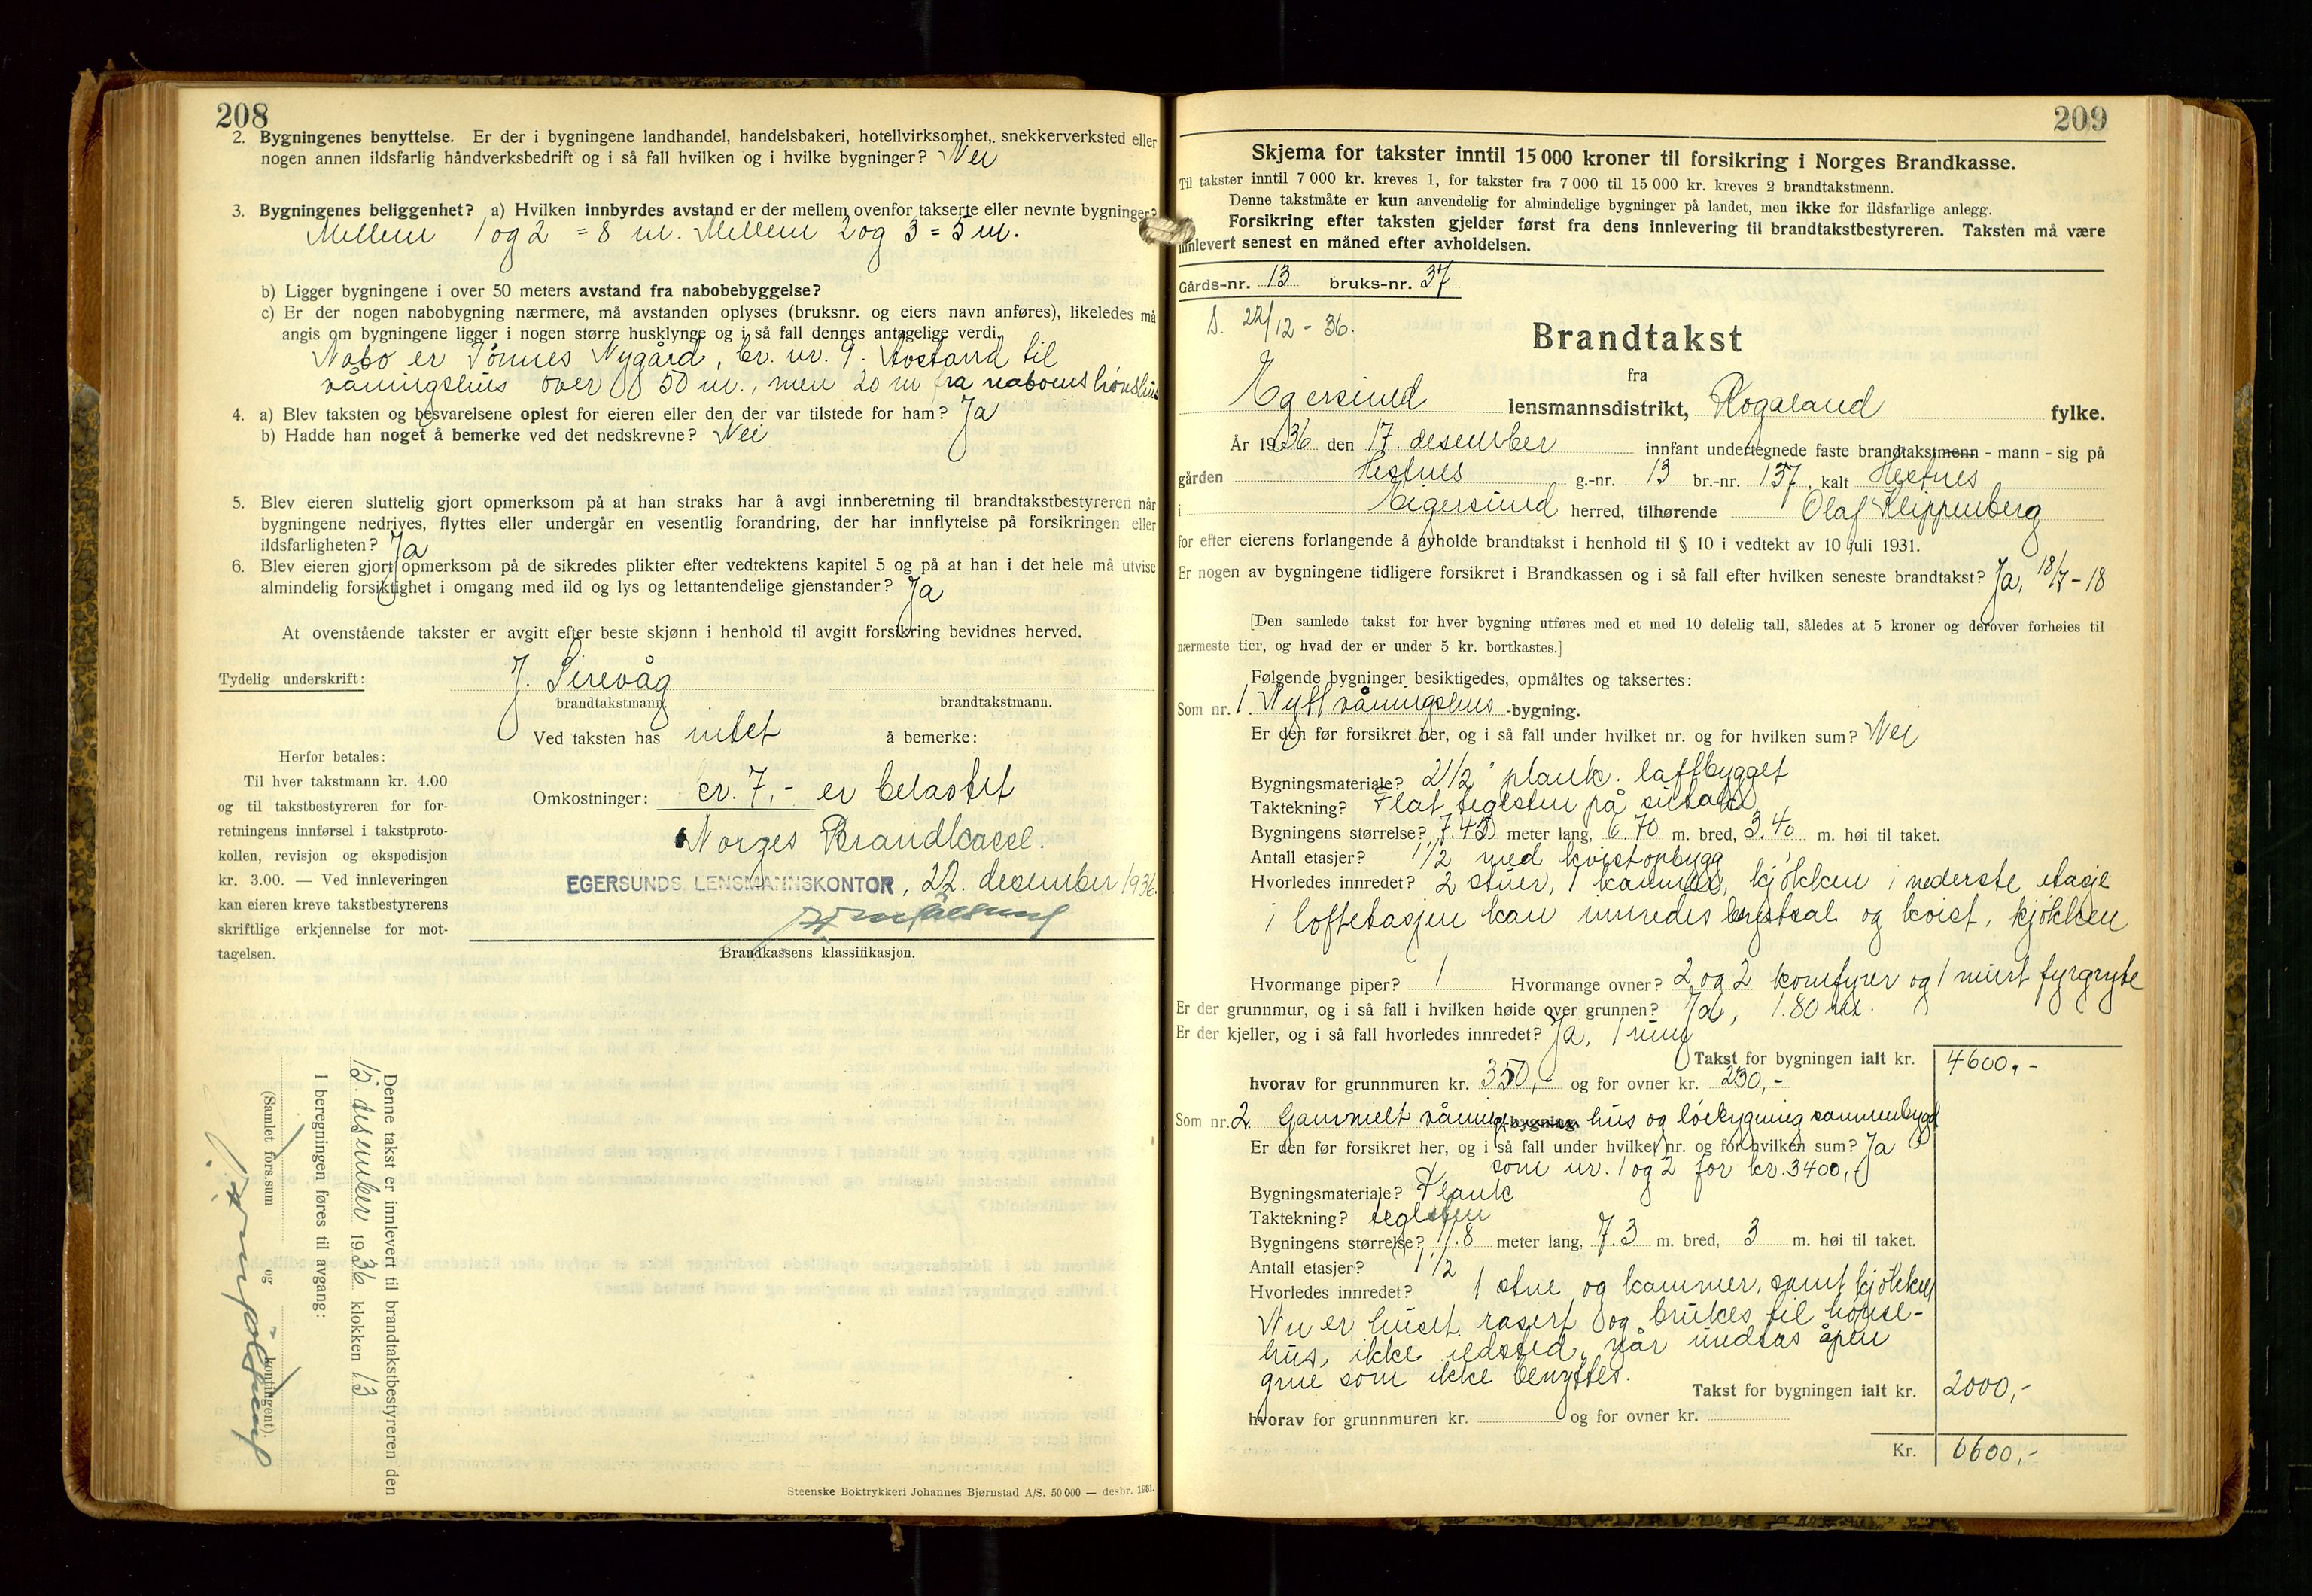 208
2. Bygningenes benyttelse. Er der i bygningene landhandel, handelsbakeri, hotellvirksomhet, snekkerverksted eller
nogen annen ildsfarlig håndverksbedrift og i så fall hvilken og i hvilke bygninger? Nei
3. Bygningenes beliggenhet? a) Hvilken innbyrdes avstand er der mellem ovenfor takserte eller nevnte bygninger?
Mellem 1 og 2 = 8 m. Mellem 2 og 3 = 5 m.
b) Ligger bygningene i over 50 meters avstand fra nabobebyggelse?
c) Er der nogen nabobygning nærmere, må avstanden oplyses (bruksnr. og eiers navn anføres), likeledes må
angis om bygningene ligger i nogen større husklynge og i så fall dennes antagelige verdi.
Nabo er Tönnes Nygård, br. nr. 9. Avstand til
våningshus over 50 m., men 20 m fra naboens hönsehus
4. a) Blev taksten og besvarelsene oplest for eieren eller den der var tilstede for ham? Ja
b) Hadde han noget å bemerke ved det nedskrevne? Nei
5. Blev eieren sluttelig gjort opmerksom på at han straks har å avgi innberetning til brandtakstbestyreren når
bygningene nedrives, flyttes eller undergår en vesentlig forandring, der har innflytelse på forsikringen eller
ildsfarligheten? Ja
6. Blev eieren gjort opmerksom på de sikredes plikter efter vedtektens kapitel 5 og på at han i det hele må utvise
almindelig forsiktighet i omgang med ild og lys og lettantendelige gjenstander? Ja
At ovenstående takster er avgitt efter beste skjønn i henhold til avgitt forsikring bevidnes herved.
Tydelig underskrift: J. Sirevåg
brandtakstmann. brandtakstmann.
Ved taksten has intet å bemerke:
Herfor betales:
Til hver takstmann kr. 4.00
og til takstbestyreren for for-
retningens innførsel i takstproto-
kollen, revisjon og ekspedisjon
kr. 3.00. — Ved innleveringen
kan eieren kreve takstbestyrerens
skriftlige erkjennelse for mot-
tagelsen.
Omkostninger: cr. 7,- er belastet
Norges Brandkasse.
EGERSUNDS LENSMANNSKONTOR, 22. desember 1936.
Brandkassens klassifikasjon.
Denne takst er innlevert til brandtakstbestyreren den
15. desember 1936 klokken 13
I beregningen føres til avgang:
(Samlet fors.sum og kontingent).
Steenske Boktrykkeri Johannes Bjørnstad A/S. 50 000 — desbr. 1931.
209
Skjema for takster inntil 15 000 kroner til forsikring i Norges Brandkasse.
Til takster inntil 7 000 kr. kreves 1, for takster fra 7 000 til 15 000 kr. kreves 2 brandtakstmenn.
Denne takstmåte er kun anvendelig for almindelige bygninger på landet, men ikke for ildsfarlige anlegg.
Forsikring efter taksten gjelder først fra dens innlevering til brandtakstbestyreren. Taksten må være
innlevert senest en måned efter avholdelsen.
Gårds-nr. 13 bruks-nr. 37
D. 22/12 - 36.
Brandtakst
fra
Egersund lensmannsdistrikt, Rogaland fylke.
År 1936 den 17. desember innfant undertegnede faste brandtakstmenn - mann - sig på
gården Hestnes g.-nr. 13 br.-nr. 137, kalt Hestnes
i Eigersund herred, tilhørende Olaf Klippenberg
for efter eierens forlangende å avholde brandtakst i henhold til § 10 i vedtekt av 10 juli 1931.
Er nogen av bygningene tidligere forsikret i Brandkassen og i så fall efter hvilken seneste brandtakst? Ja, 18/7 - 18
[Den samlede takst for hver bygning utføres med et med 10 delelig tall, således at 5 kroner og derover forhøies til
nærmeste tier, og hvad der er under 5 kr. bortkastes.]
Følgende bygninger besiktigedes, opmåltes og taksertes:
Som nr. 1. Nytt våningshus -bygning.
Er den før forsikret her, og i så fall under hvilket nr. og for hvilken sum? Nei
Bygningsmateriale? 2 1/2" plank. laftbygget
Taktekning? Flat teglsten på sutak
Bygningens størrelse? 7.45 meter lang, 6.70 m. bred, 3.40 m. høi til taket.
Antall etasjer? 1 1/2 med kvistopbygg
Hvorledes innredet? 2 stuer, 1 kammer, kjökken i nederste etasje
i loftetasjen kan innredes og kvist, kjökken
Hvormange piper? 1 Hvormange ovner? 2 og 2 komfyrer og 1 murt fyrgryte
Er der grunnmur, og i så fall i hvilken høide over grunnen? Ja, 1.80 m.
Er der kjeller, og i så fall hvorledes innredet? Ja, 1 rum
Takst for bygningen ialt kr. 4600,-
hvorav for grunnmuren kr. 350,- og for ovner kr. 230,-
Som nr. 2. Gammelt vånings-bygning hus og löebygning sammenbygd
Er den før forsikret her, og i så fall under hvilket nr. og for hvilken sum? Ja
som nr. 1 og 2 for kr. 3400,-
Bygningsmateriale? Plank
Taktekning? teglsten
Bygningens størrelse? 11.8 meter lang, 7.3 m. bred, 3 m. høi til taket.
Antall etasjer? 1 1/2
Hvorledes innredet? 1 stue og kammer, samt kjökken
Nu er huset rasert og brukes til hönse-
hus, ikke ildsted, når undtas åpen
grue som ikke benyttes.
Takst for bygningen ialt kr. 2000,-
hvorav for grunnmuren kr. og for ovner kr.
Kr. 6600,-